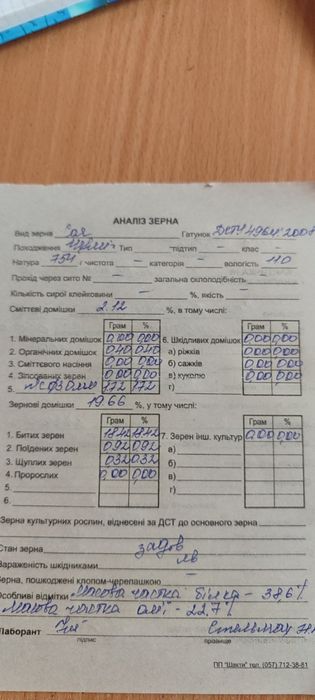 АНАЛІЗ ЗЕРНА
Вид зерна Соя Ґатунок ДСТУ 4964:2008
Походження Тип – підтип – клас –
Натура 754 г чистота – категорія – вологість 11.0
Прохід через сито № – загальна склоподібність –
Кількість сирої клейковини – %, якість –
Сміттєві домішки 2.12 %, в тому числі:
Грам % Грам %
1. Мінеральних домішок 0,00 0,00 6. Шкідливих домішок 0,00 0,00
2. Органічних домішок 0,40 0,40 а) ріжків 0,00 0,00
3. Сміттєвого насіння 0,00 0,00 б) сажків 0,00 0,00
4. Зіпсованих зерен 0,00 0,00 в) куколю 0,00 0,00
5. 1,72 1,72 г)
Зернові домішки 19.66 %, у тому числі:
Грам % Грам %
1. Битих зерен 18.42 18.42 7. Зерен інш. культур 0,00 0,00
2. Поїдених зерен 0,92 0,92 а)
3. Щуплих зерен 0,32 0,32 б)
4. Пророслих 0,00 0,00 в)
5. г)
6.
Зерна культурних рослин, віднесені за ДСТ до основного зерна
Стан зерна задов
Зараженість шкідниками не в
Зерна, пошкоджені клопом-черепашкою –
Особливі відмітки Масова частка білка – 38.6 %
Масова частка олії – 22.7 %
Лаборант
підпис прізвище
ПП "Шакти" тел. (057) 712-38-61